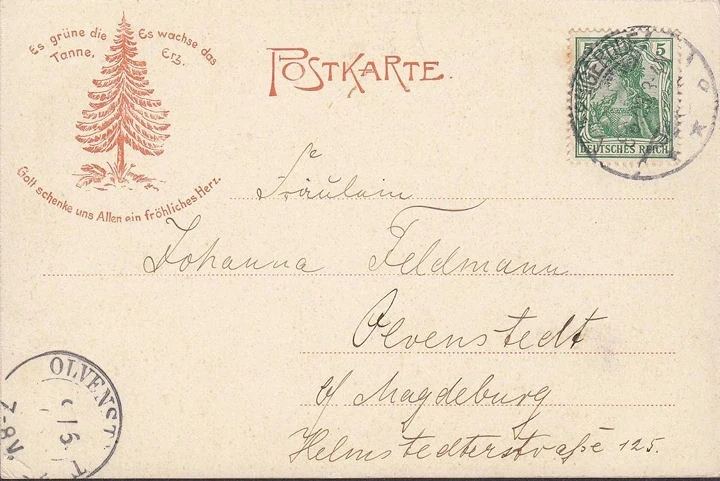 Es grüne die Tanne, Es wachse das Erz.
Gott schenke uns Allen ein fröhliches Herz.
POSTKARTE.
5 5
DEUTSCHES REICH
Fräulein
Johanna Feldmann
Olvenstedt
b/ Magdeburg
Helmstedterstraße 125.
OLVENST
7-8 V.